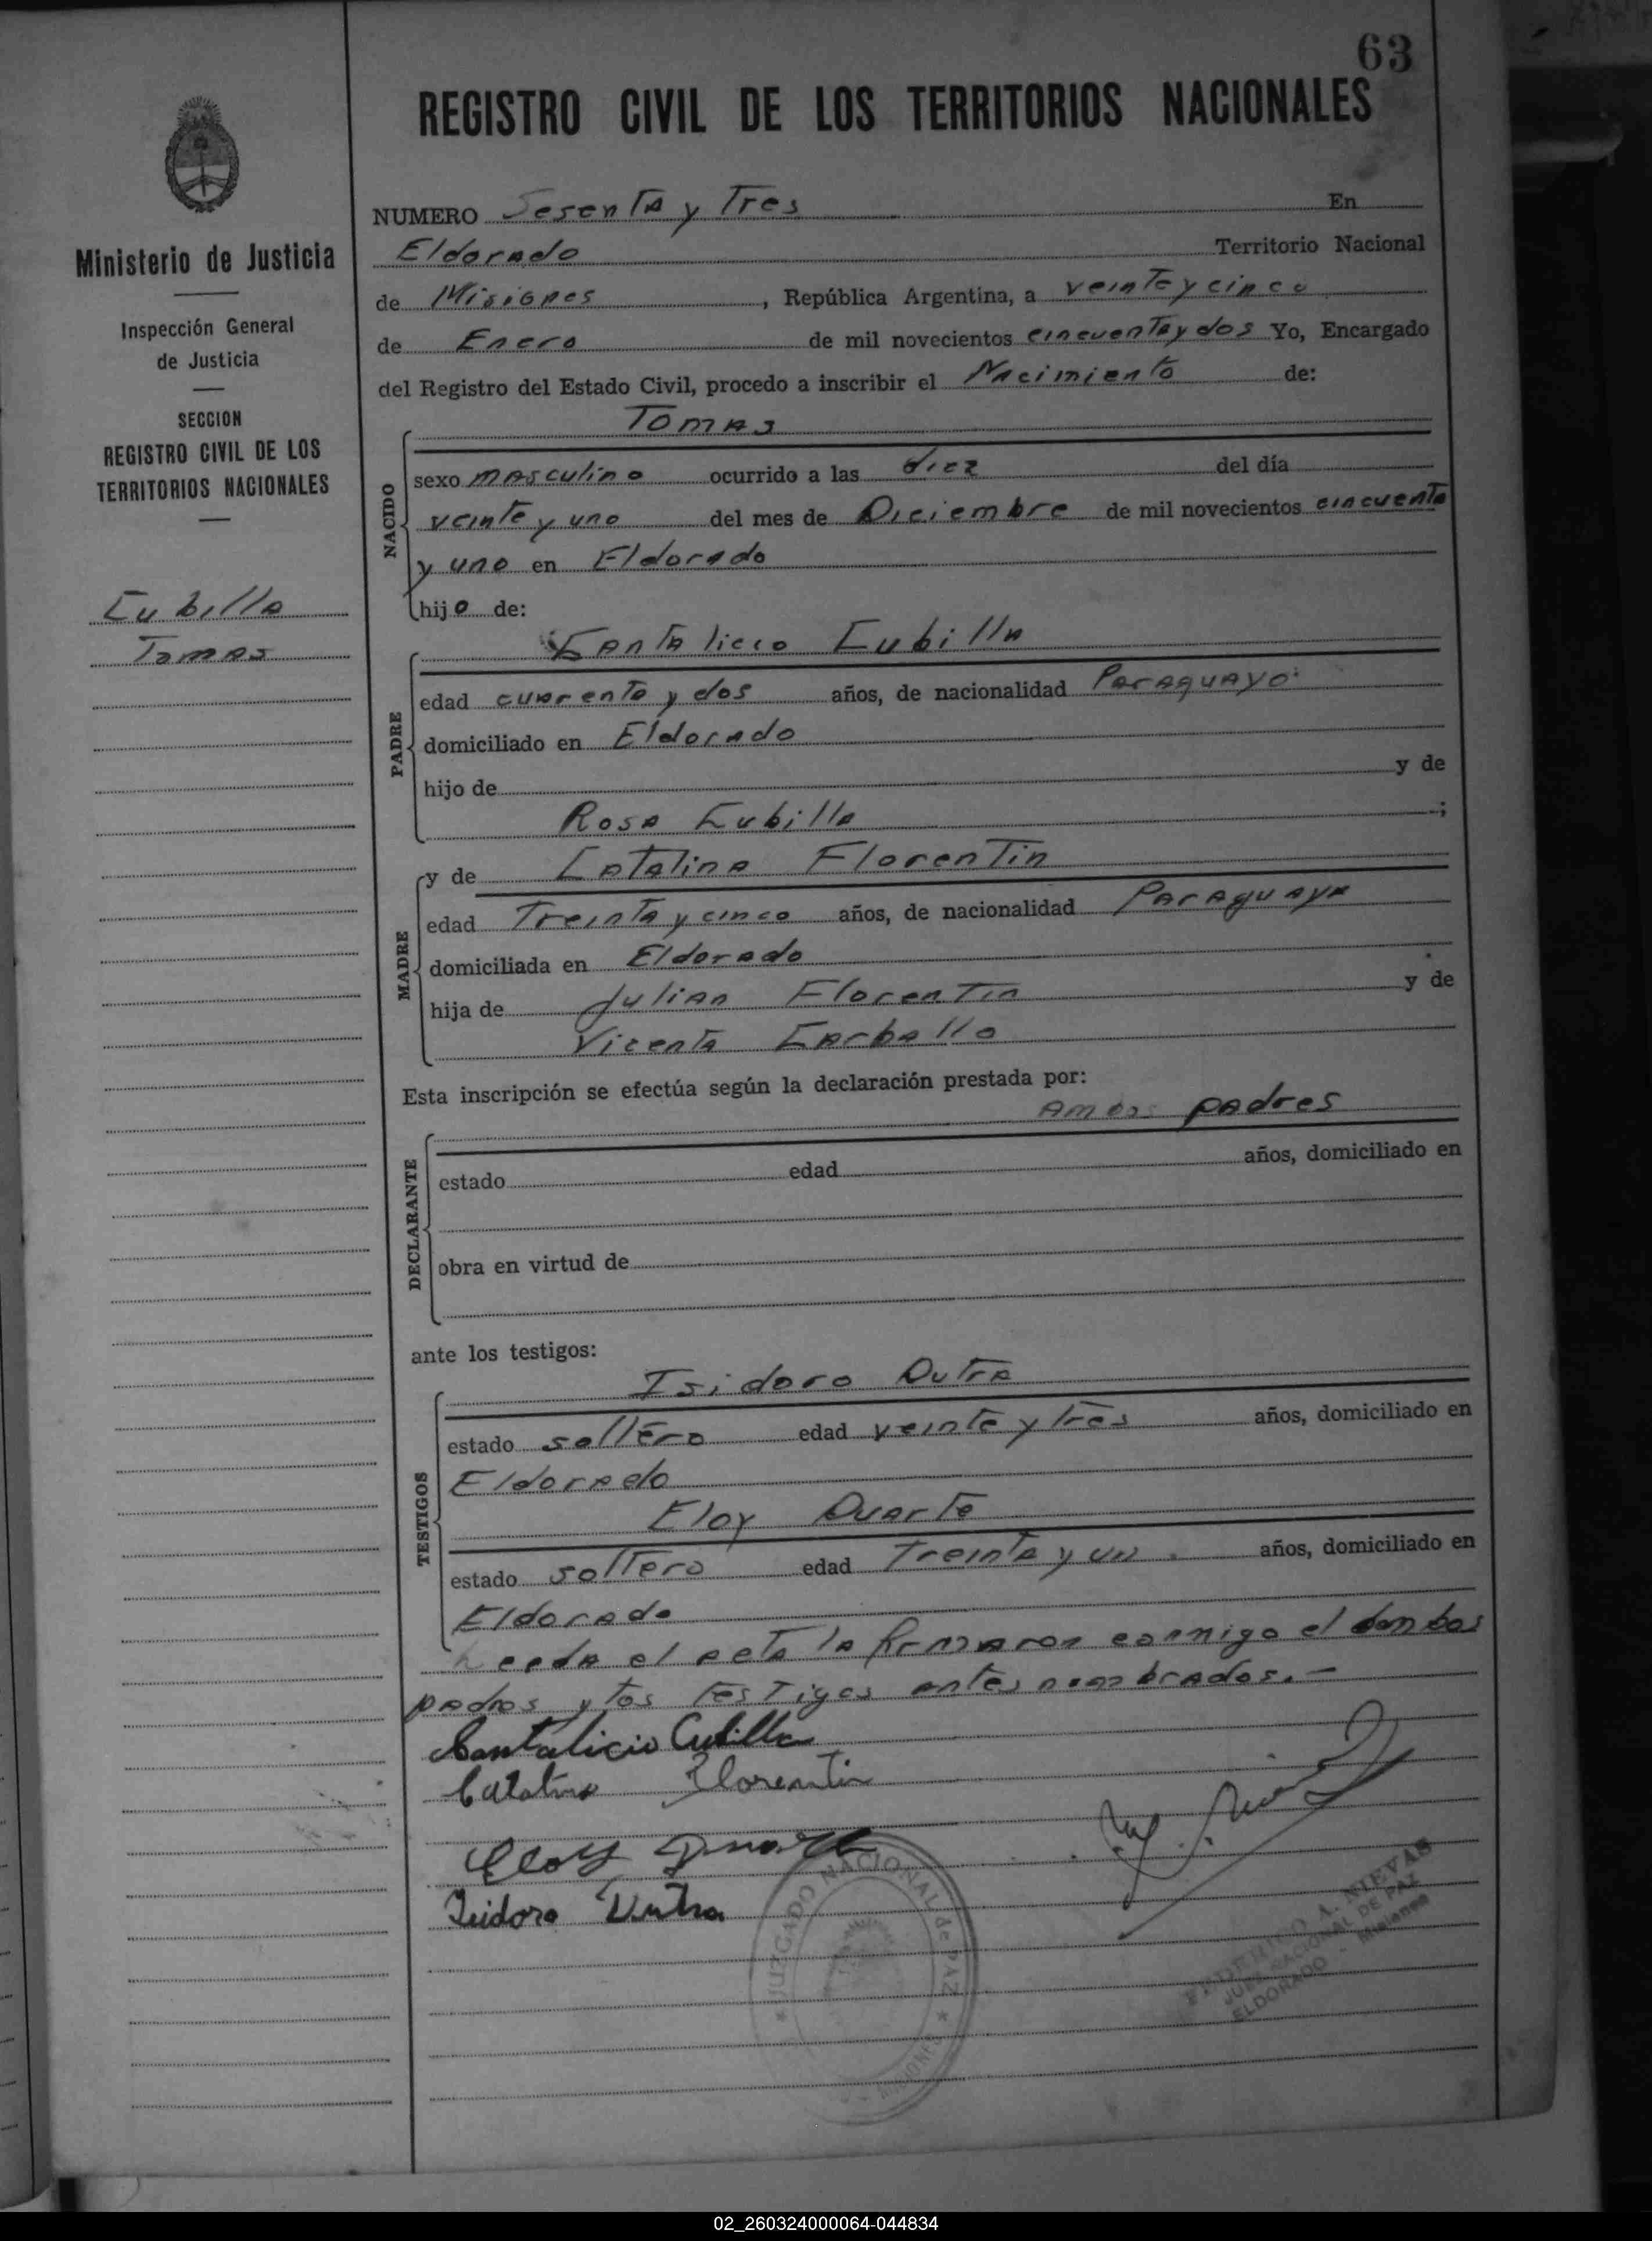 63
REGISTRO CIVIL DE LOS TERRITORIOS NACIONALES
Ministerio de Justicia
Inspección General
de Justicia
SECCION
REGISTRO CIVIL DE LOS
TERRITORIOS NACIONALES
Cubilla
Tomas
NUMERO Sesenta y Tres En
Eldorado Territorio Nacional
de Misiones, República Argentina, a veinte y cinco
de Enero de mil novecientos cincuenta y dos Yo, Encargado
del Registro del Estado Civil, procedo a inscribir el Nacimiento de:
NACIDO
Tomas
sexo masculino ocurrido a las diez del día
veinte y uno del mes de Diciembre de mil novecientos cincuenta
y uno en Eldorado
hijo de:
PADRE
Cantalicio Cubilla
edad cuarenta y dos años, de nacionalidad Paraguayo
domiciliado en Eldorado
hijo de y de
Rosa Cubilla ;
MADRE
y de Catalina Florentin
edad Treinta y cinco años, de nacionalidad Paraguaya
domiciliada en Eldorado
hija de Julian Florentin y de
Vicenta Carballo
Esta inscripción se efectúa según la declaración prestada por:
DECLARANTE
Ambos padres
estado edad años, domiciliado en
obra en virtud de
ante los testigos:
TESTIGOS
Isidoro Dutra
estado soltero edad veinte y tres años, domiciliado en
Eldorado
Eloy Duarte
estado soltero edad Treinta y un años, domiciliado en
Eldorado
Leeda el acta la firmaron conmigo el ambos
padres y los testigos antes nombrados.-
Cantalicio Cubilla
Catalina Florentin
Eloy Duarte
Isidoro Dutra
JUZGADO NACIONAL de PAZ
MISIONES
A. NIEVAS
JUEZ NACIONAL DE PAZ
ELDORADO - Misiones
02_260324000064-044834